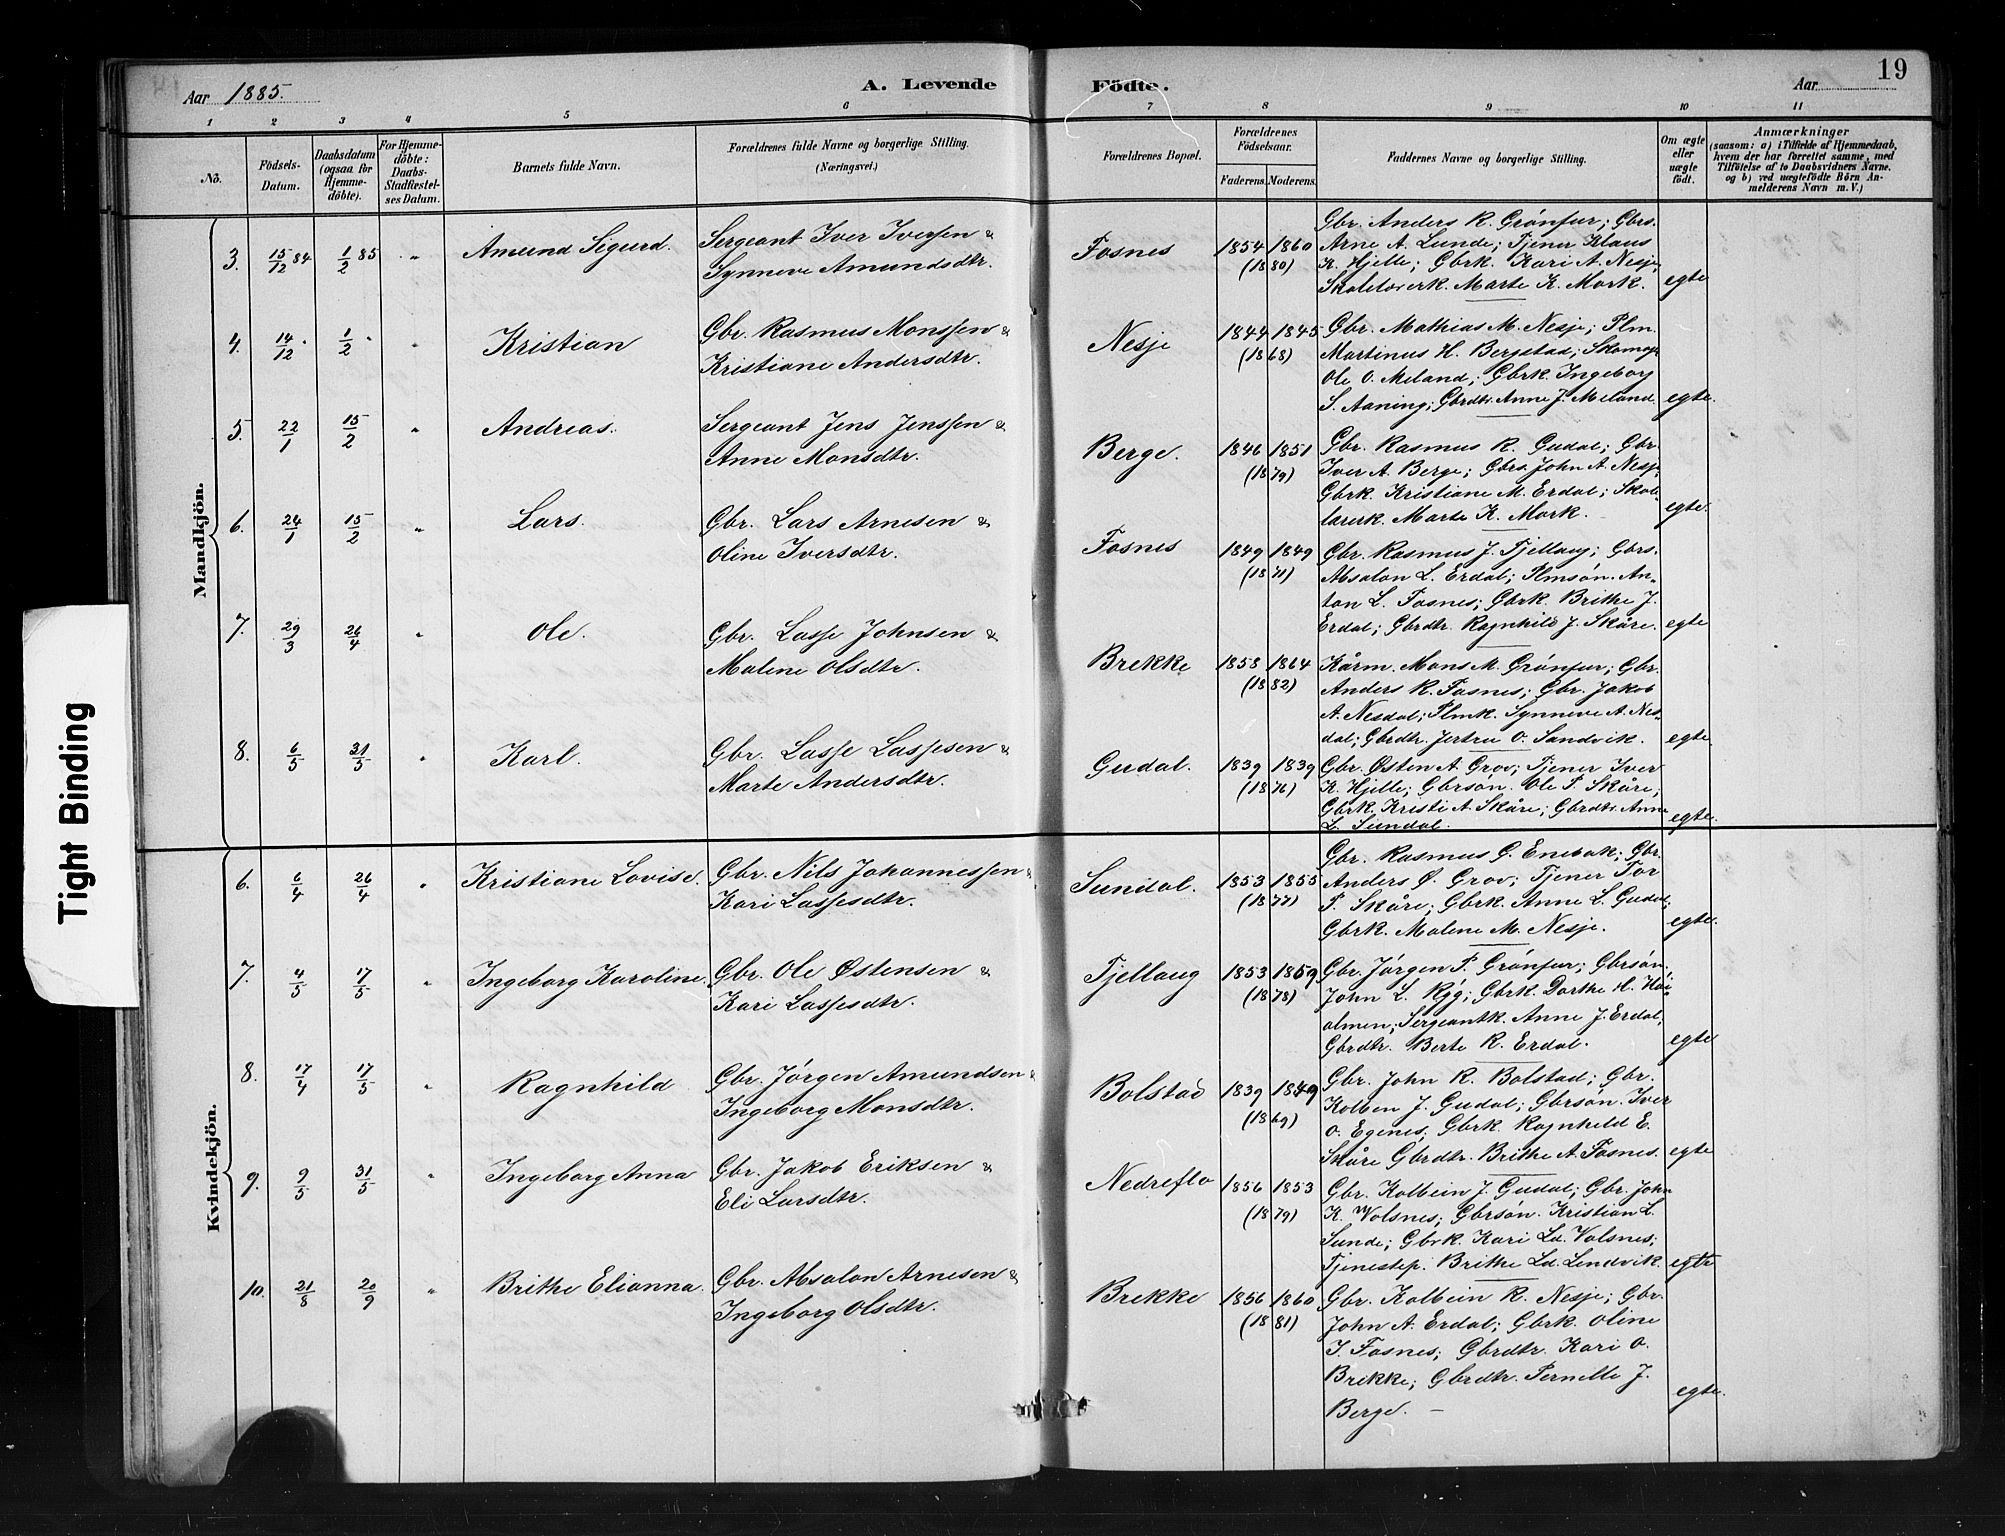 Aar 1885.
A. Levende Födte.
Aar
19
1 2 3 4 5 6 7 8 9 10 11
No.
Födsels-Datum.
Daabsdatum (ogsaa for Hjemmedöbte).
For Hjemmedöbte: Daabs-Stadfæstelses Datum.
Barnets fulde Navn.
Forældrenes fulde Navne og borgerlige Stilling. (Næringsvei.)
Forældrenes Bopæl.
Forældrenes Födselsaar.
Faderens. Moderens.
Faddernes Navne og borgerlige Stilling.
Om ægte eller uægte födt.
Anmærkninger
(saasom: a) i Tilfælde af Hjemmedaab, hvem der har forrettet samme, med Tilföielse af to Daabsvidners Navne, og b) ved uægtefödte Börn Anmelderens Navn m. V.)
Mandkjön.
3. 15/12 84 1/2 85 " Amund Sigurd.
Sergeant Iver Iversen &
Synneve Amundsdtr.
Fosnes 1854 1860
(1880)
Gbr. Anders R. Grønfur; Gbrs.
Arne A. Lunde; Tjener Klaus
K. Hjelle; Gbrk. Kari A. Nesje;
Skolelærerk. Marte K. Mork. egte
4. 14/12 " 1/2 " " Kristian
Gbr. Rasmus Monssen &
Kristiane Andersdtr.
Nesje 1844 1845
(1868)
Gbr. Mathias M. Nesje; Plm.
Martinus H. Bergstad; Skomag.
Ole O. Meland; Gbrk. Ingeborg
S. Aaning; Gbrdtr. Anne J. Meland. egte.
5. 22/1 15/2 " Andreas.
Sergeant Jens Jenssen &
Anne Monsdtr.
Berge. 1846 1851
(1879)
Gbr. Rasmus R. Gudal; Gbr.
Iver A. Berge; Gbrs. John A. Nesje;
Gbrk. Kristiane M. Erdal; Skol
lærerk. Marte K. Mork. egte.
6. 24/1 15/2 " Lars.
Gbr. Lars Arnesen &
Oline Iversdtr.
Fosnes 1849 1849
(1871)
Gbr. Rasmus J. Tjellaug; Gbrs.
Absalon L. Erdal; Plmsøn. An-
ton L. Fosnes; Gbrk. Brithe J.
Erdal; Gbrdtr. Ragnhild J. Skåre. egte
7. 29/3 26/4 " Ole.
Gbr. Lasse Johnsen &
Malene Olsdtr.
Brekke 1858 1864
(1882)
Kårm. Mons M. Grønfur; Gbr.
Anders R. Fosnes; Gbr. Jakob
A. Nesdal; Plmk. Synneve A. Nes-
dal; Gbrdtr. Jertru O. Sandvik. egte.
8. 6/5 31/5 " Karl.
Gbr. Lasse Lassesen &
Marte Andersdtr.
Gudal. 1839 1839
(1876)
Gbr. Østen A. Grov; Tjener Iver
K. Hjelle; Gbrsøn. Ole P. Skåre;
Gbrk. Kristi A. Skåre; Gbrdtr. Anne
L. Sundal. egte.
Kvindekjön.
6. 6/4 26/4 " Kristiane Lovise.
Gbr. Nils Johannessen &
Kari Lassesdtr.
Sundal. 1853 1855
(1877)
Gbr. Rasmus G. Enebak; Gbr.
Anders Ø. Grov; Tjener Tor
P. Skåre; Gbrk. Anne L. Gudal;
Gbrk. Malene M. Nesje. egte.
7. 4/5 17/5 " Ingeborg Karoline.
Gbr. Ole Østensen &
Kari Lassesdtr.
Tjellaug 1853 1859
(1878)
Gbr. Jørgen P. Grønfur; Gbrsøn,
John L. Ryg; Gbrk. Dorthe H. Høi-
olmen; Sergeantk. Anne J. Erdal;
Gbrdtr. Berte R. Erdal. egte
8. 17/4 17/5 " Ragnhild
Gbr. Jørgen Amundsen &
Ingeborg Monsdtr.
Bolstad 1839 1849
(1869)
Gbr. John R. Bolstad; Gbr.
Kolben J. Gudal; Gbrsøn. Iver
O. Egenes; Gbrk. Ragnhild E.
Skåre Gbrdtr. Brithe A. Fosnes. egte
9. 9/5 31/5 " Ingeborg Anna
Gbr. Jakob Eriksen &
Eli Larsdtr.
Nedreflo 1856 1853
(1879)
Gbr. Kolbein J. Gudal; Gbr. John
K. Volsnes; Gbrsøn. Kristian L.
Sunde; Gbrk. Kari Ld. Volsnes;
Tjenestep. Brithe Ld. Lendvik. egte
10. 21/8 20/9 " Brithe Elianna.
Gbr. Absalon Arnesen &
Ingeborg Olsdtr.
Brekke 1856 1860
(1881)
Gbr. Kolbein R. Nesje; Gbr.
John A. Erdal; Gbrk. Oline
I. Fosnes; Gbrdtr. Kari O.
Brekke; Gbrdtr. Pernille J.
Berge. – egte.
Tight Binding